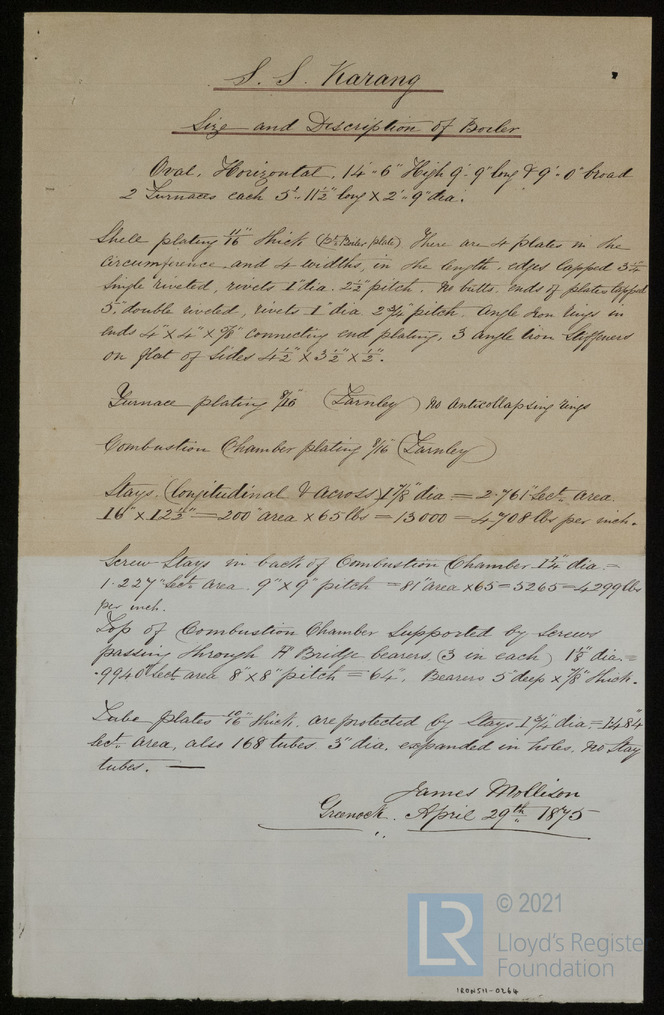 S. S. Karang
Size and Description of Boiler
Oval, Horizontal, 14'-6" High 9'-9" long & 9'-0" broad
2 Furnaces each 5'-11½" long X 2'-9" dia.
Shell plating 11/16 thick (Bt Boiler plate) There are 4 plates in the
Circumference and 4 widths, in the length, edges lapped 3¼
Single riveted, rivets 1" dia. 2½" pitch. No butts. ends of plates lapped
5", double riveted, rivets 1" dia 2¾" pitch. Angle Iron rings in
ends 4" X 4" X 9/16" connecting end plating, 3 angle iron Stiffeners
on flat of sides 4½" X 3½" X ½".
Furnace plating 8/16 (Farnley) No Anticollapsing rings
Combustion Chamber plating 8/16 (Farnley)
Stays, (Longitudinal & across) 1⅞" dia = 2.761" Sect. area.
16" X 12½" = 200" area X 65 lbs = 13000 = 4708 lbs per inch.
Screw Stays in back of Combustion Chamber 1¼" dia. =
1.227" Sect. area. 9" X 9" pitch = 81" area X 65 = 5265 = 4299 lbs
per inch.
Top of Combustion Chamber Supported by Screws
passing through Bridge bearers, (3 in each) 1⅛" dia. =
.9940" Sect. area 8" X 8" pitch = 64". Bearers 5" deep X ⅞" thick.
Tube plates 10/16" thick, are protected by Stays 1¾" dia. = 1.484"
Sect. area, also 168 tubes 3" dia. expanded in holes, No Stay
tubes. —
James Mollison
Greenock. April 29th 1875
© 2021
LR
Lloyd's Register
Foundation
IRON511-0264